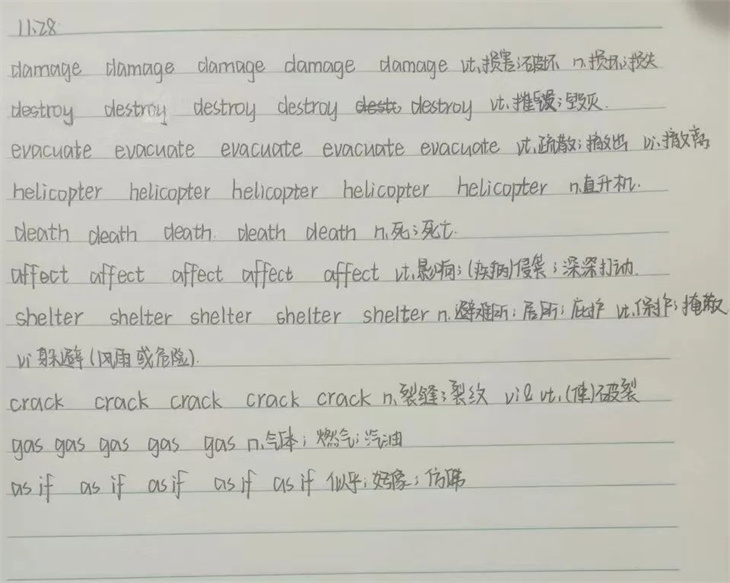 11.28
damage damage damage damage damage vt.损害;破坏 n.损坏;损失
destroy destroy destroy destroy destroy vt.摧毁;毁灭.
evacuate evacuate evacuate evacuate evacuate vt.疏散;撤出 vi.撤离
helicopter helicopter helicopter helicopter helicopter n.直升机.
death death death death death n.死;死亡.
affect affect affect affect affect vt.影响;(疾病)侵袭;深深打动.
shelter shelter shelter shelter shelter n.避难所;居所;庇护 vt.保护;掩蔽
vi 躲避(风雨或危险).
crack crack crack crack crack n.裂缝;裂纹 vi & vt.(使)破裂
gas gas gas gas gas n.气体;燃气;汽油
as if as if as if as if as if 似乎;好像;仿佛